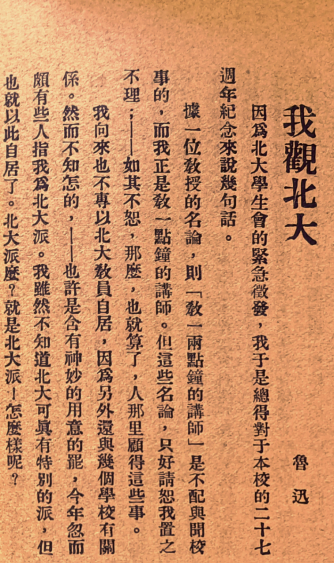 我觀北大
魯迅
因爲北大學生會的緊急徵發,我于是總得對于本校的二十七
週年紀念來說幾句話。
據一位敎授的名論,則「敎一兩點鐘的講師」是不配與聞校
事的,而我正是敎一點鐘的講師。但這些名論,只好請恕我置之
不理;——如其不恕,那麼,也就算了,人那里顧得這些事。
我向來也不專以北大敎員自居,因爲另外還與幾個學校有關
係。然而不知怎的,——也許是含有神妙的用意的罷,今年忽而
頗有些人指我爲北大派。我雖然不知道北大可眞有特別的派,但
也就以此自居了。北大派麼?就是北大派!怎麼樣呢?